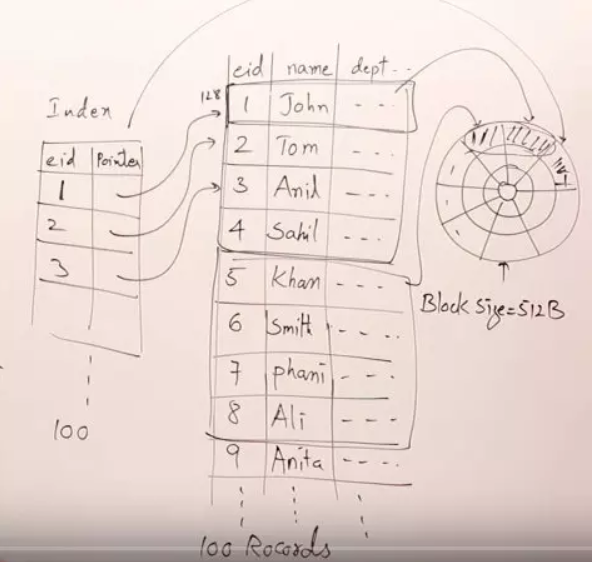 Index
eid Pointer
1
2
3
100
eid name dept - -
128
1 John - - -
2 Tom - - -
3 Anil - - -
4 Sahil - - -
5 Khan - - -
6 Smith - - - -
7 phani - - -
8 Ali - - -
9 Anita - - - -
100 Rocords
Block Size=512B